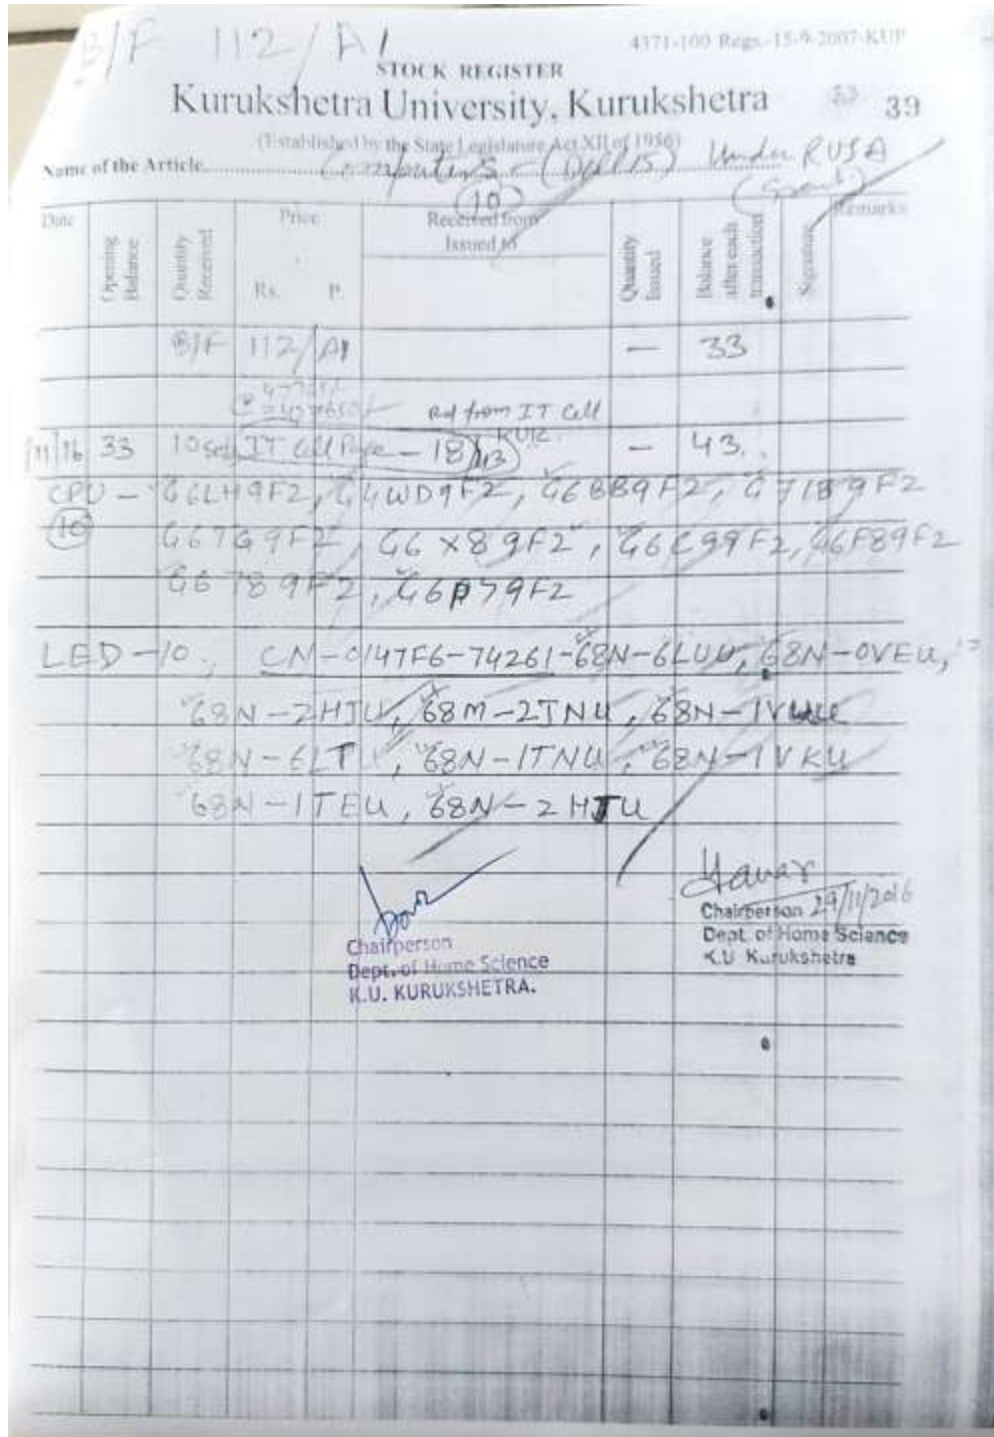 B/F 112/A1
4371-100 Regs.-15-9-2007-KUP
STOCK REGISTER
Kurukshetra University, Kurukshetra 39
(Established by the State Legislature Act XII of 1956)
Name of the Article Computers - (Dell) Under RUSA
(10) (Grant)
Date Opening Balance Quantity Received Price Rs. P. Received from Issued to Quantity Issued Balance after each transaction Signature Remarks
B/F 112/A1 — 33
Rd from IT Cell
KUK
11/16 33 10 Sets IT Cell Page - 18 — 43
CPU - G6LH9F2, G4WD9F2, G6BB9F2, G71B9F2
(10) G67G9F2, G6X89F2, G6C99F2, G6F89F2
G6789F2, G6P79F2
LED-10, CN-0147F6-74261-68N-6LUU, 68N-0VEU,
68N-2HJU, 68M-2TNU, 68N-1VUU
68N-6LT, 68N-1TNU, 68N-1VKU
68N-1TEU, 68N-2HTU
Chairperson 29/11/2016
Dept. of Home Science
K.U Kurukshetra
Chairperson
Dept. of Home Science
K.U. KURUKSHETRA.